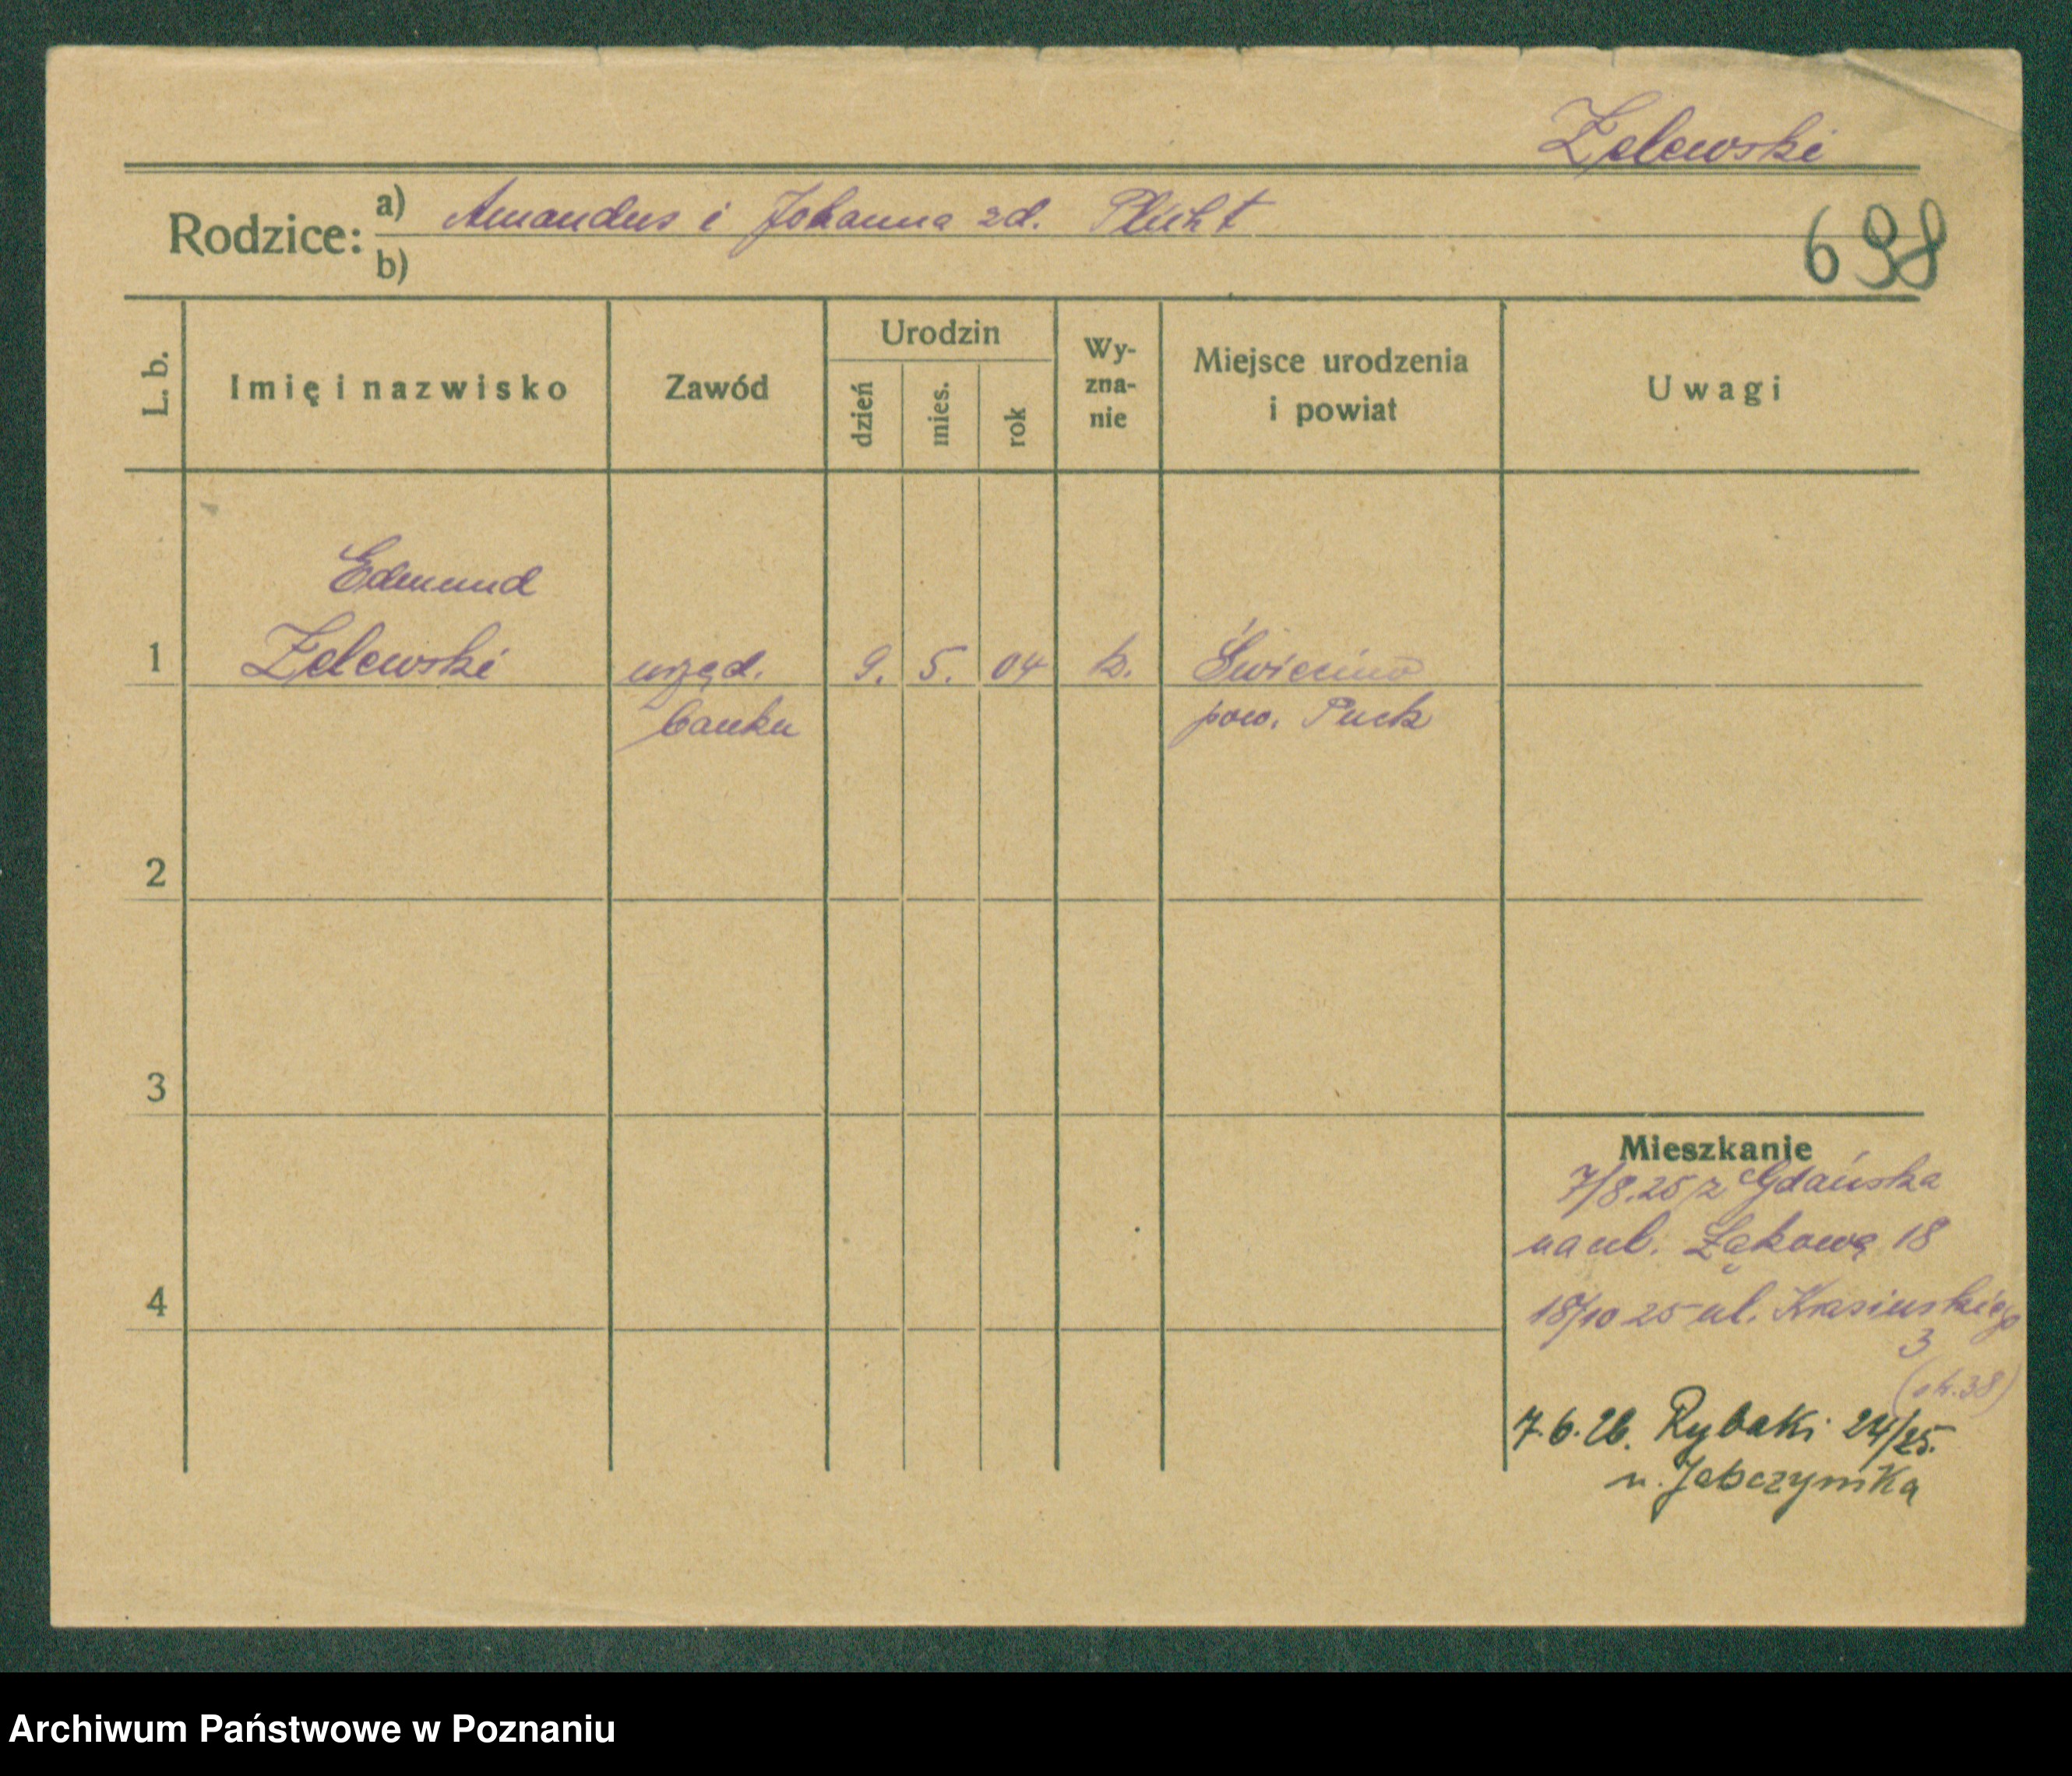 Żelewski
Rodzice: a) Amandus i Johanna zd. Plicht
b)
698
L. b.
Imię i nazwisko
Zawód
Urodzin
dzień
mies.
rok
Wy-
zna-
nie
Miejsce urodzenia
i powiat
Uwagi
Edmund
1 Żelewski urzęd. 9. 5. 04 k. Święcino
banku pow. Puck
2
3
Mieszkanie
7/8.25 z Gdańska
na ul. Łąkową 18
4
18/10 25 ul. Krasińskiego
3
7.6.26. Rybaki 24/25.
u. Jabczyńska
Archiwum Państwowe w Poznaniu